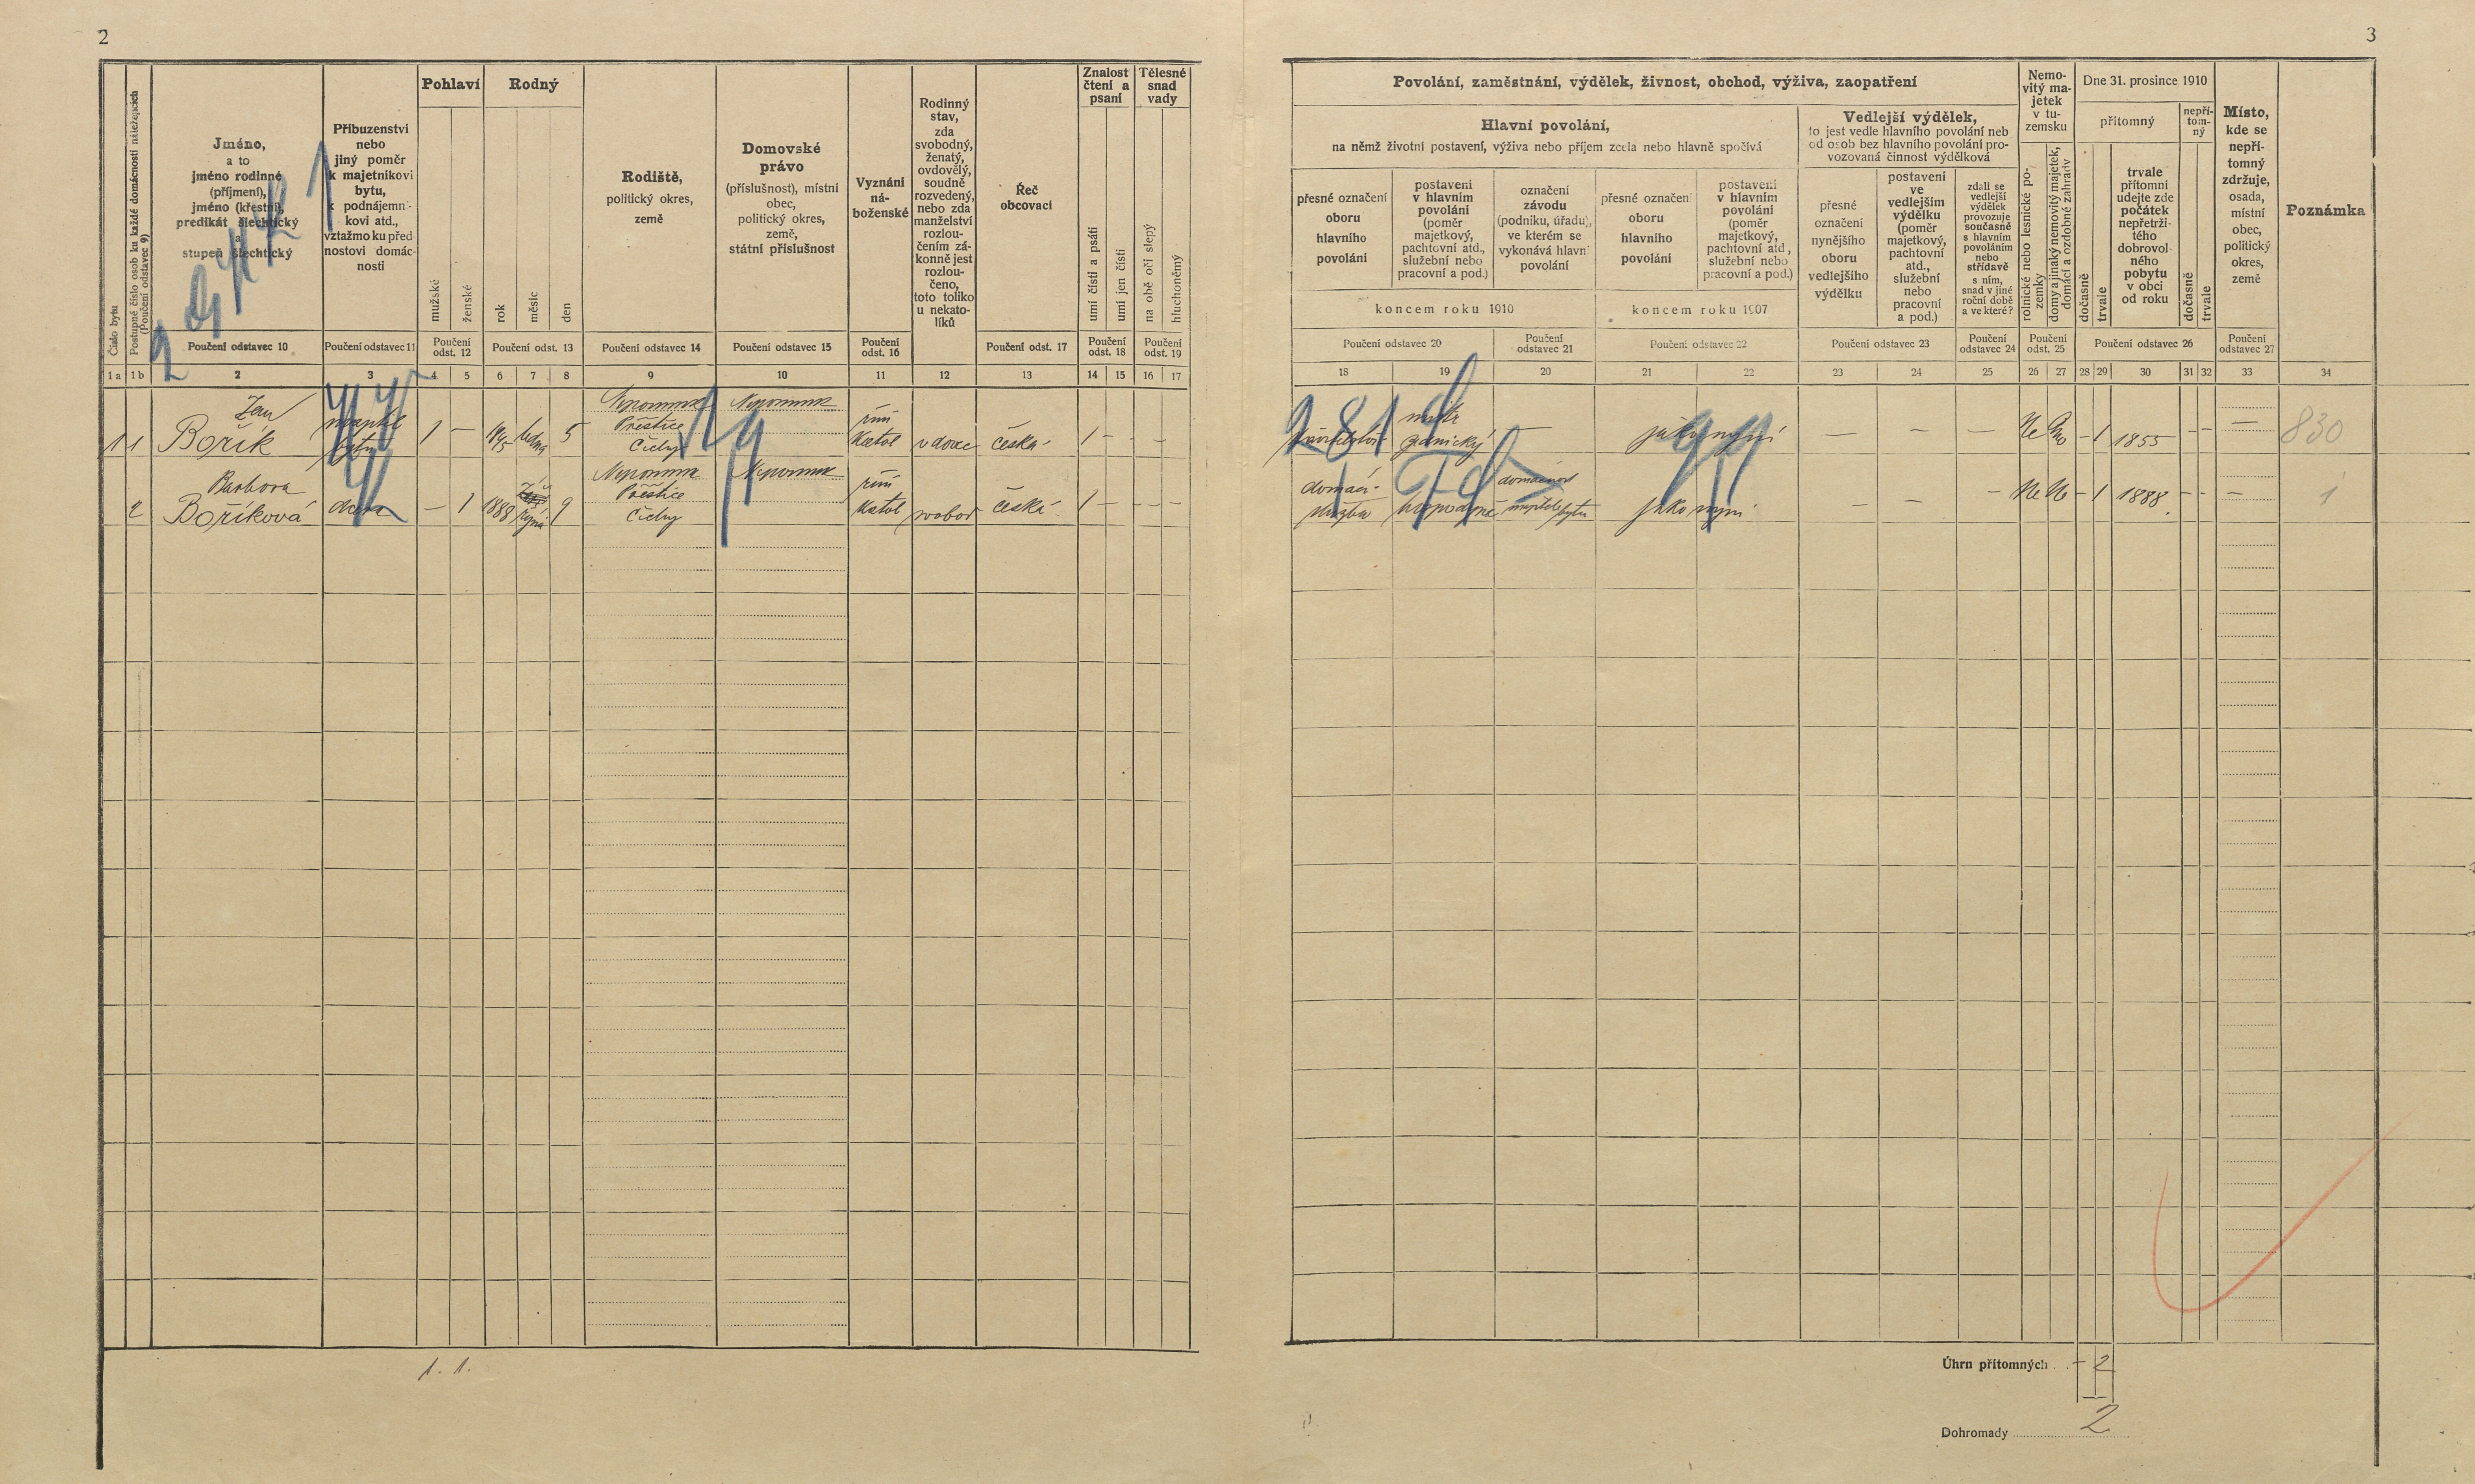 2
3
Číslo bytu
Postupné číslo osob ku každé domácnosti náležejících
(Poučení odstavec 9)
Jméno,
a to
jméno rodinné
(příjmení),
jméno (křestní),
predikát šlechtický
a
stupeň šlechtický
Příbuzenství
nebo
jiný poměr
k majetníkovi
bytu,
k podnájemní-
kovi atd.,
vztažmo ku před-
nostovi domác-
nosti
Pohlaví
mužské
ženské
Rodný
rok
měsíc
den
Rodiště,
politický okres,
země
Domovské
právo
(příslušnost), místní
obec,
politický okres,
země,
státní příslušnost
Vyznání
ná-
boženské
Rodinný
stav,
zda
svobodný,
ženatý,
ovdovělý,
soudně
rozvedený,
nebo zda
manželství
rozlou-
čením zá-
konně jest
rozlou-
čeno,
toto toliko
u nekato-
líků
Řeč
obcovací
Znalost
čtení a
psaní
umí čísti a psáti
umí jen čísti
Tělesné
snad
vady
na obě oči slepý
hluchoněmý
Poučení odstavec 10
Poučení odstavec 11
Poučení
odst. 12
Poučení odst. 13
Poučení odstavec 14
Poučení odstavec 15
Poučení
odst. 16
Poučení odst. 17
Poučení
odst. 18
Poučení
odst. 19
1 a 1 b 2 3 4 5 6 7 8 9 10 11 12 13 14 15 16 17
Povolání, zaměstnání, výdělek, živnost, obchod, výživa, zaopatření
Hlavní povolání,
na němž životní postavení, výživa nebo příjem zcela nebo hlavně spočívá
přesné označení
oboru
hlavního
povolání
postavení
v hlavním
povolání
(poměr
majetkový,
pachtovní atd.,
služební nebo
pracovní a pod.)
označení
závodu
(podniku, úřadu),
ve kterém se
vykonává hlavní
povolání
přesné označení
oboru
hlavního
povolání
postavení
v hlavním
povolání
(poměr
majetkový,
pachtovní atd,
služební nebo
pracovní a pod.)
koncem roku 1910
koncem roku 1907
Vedlejší výdělek,
to jest vedle hlavního povolání neb
od osob bez hlavního povolání pro-
vozovaná činnost výdělková
přesné
označení
nynějšího
oboru
vedlejšího
výdělku
postavení
ve
vedlejším
výdělku
(poměr
majetkový,
pachtovní
atd.,
služební
nebo
pracovní
a pod.)
zdali se
vedlejší
výdělek
provozuje
současně
s hlavním
povoláním
nebo
střídavě
s ním,
snad v jiné
roční době
a ve které?
Nemo-
vitý ma-
jetek
v tu-
zemsku
rolnické nebo lesnické po-
zemky
domy a jinaký nemovitý majetek,
domácí a ozdobné zahrady
Dne 31. prosince 1910
přítomný
dočasně
trvale
trvale
přítomní
udejte zde
počátek
nepřetrži-
tého
dobrovol-
ného
pobytu
v obci
od roku
nepří-
tom-
ný
dočasně
trvale
Místo,
kde se
nepří-
tomný
zdržuje,
osada,
místní
obec,
politický
okres,
země
Poznámka
Poučení odstavec 20
Poučení
odstavec 21
Poučení odstavec 22
Poučení odstavec 23
Poučení
odstavec 24
Poučení
odst. 25
Poučení odstavec 26
Poučení
odstavec 27
18 19 20 21 22 23 24 25 26 27 28 29 30 31 32 33 34
Jan
1 1 Bořík
bytu
1 —
5
Nepomuk
Přeštice
Čechy
Nepomuk
řím
Katol
vdovec
česká
1 — - -
mistr
zednický
—
jako nyní
— — —
Ne Ano
- 1 1855 - -
—
830
Barbora
2 Boříková
dcera
— 1
1888
Října
9
Nepomuk
Přeštice
Čechy
Nepomuk
řím
Katol
svobod
česká
1 — — —
domácí
služba
hospodyně
domácnost
majitele bytu
jako nyní
— — —
Ne Ne
- 1 1888 - -
—
1
1. 1.
Úhrn přítomných - 2
Dohromady 2